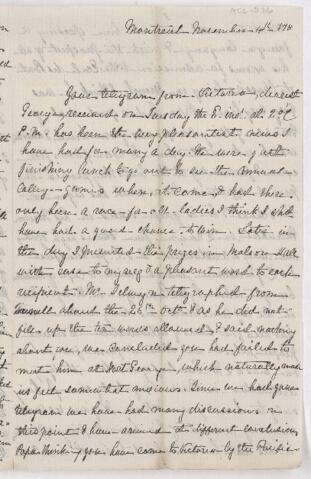 Montreal November 4th 178
Your telegram from Victoria, dearest
George, received on Tuesday the
P.M. has been the very pleasantest news I
have had for many a day. We were just
finishing lunch to go out to see the annual
College games when, it came, & had there
only been a race for old ladies I think I shd
have had a good chance to win. Later in
the day I presented the prizes in Molson Hall
with ease to myself & a pleasant word to each
recipient. Mr Selwyn telegraphed from
about the 26th Oct. & as he did not
fill up the ten words allowed, & said nothing
about you, we concluded you had failed to
meet him at Fort George, which naturally made
us feel somewhat anxious. Since we had your
telegram we have had many discussions on
this point & have arrived at different conclusions
Papa thinking you have come to Victoria by the Pacific